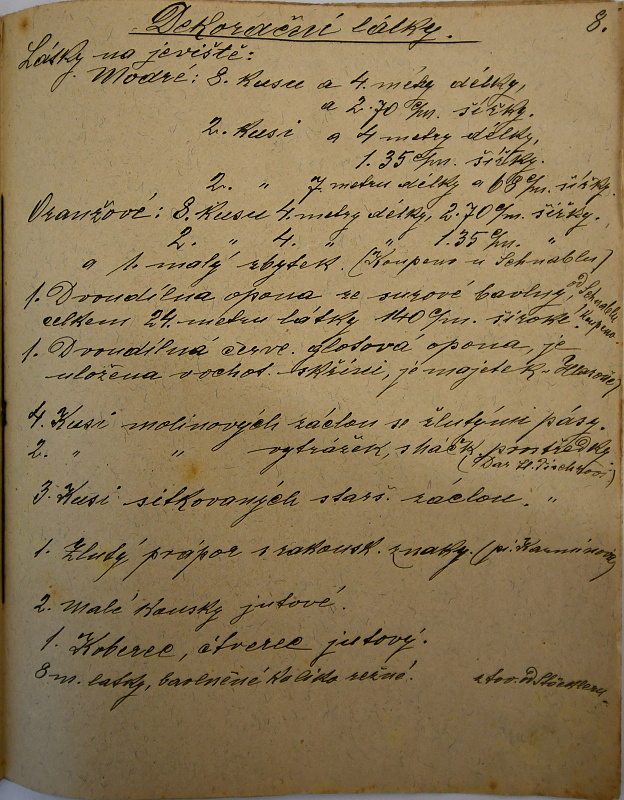 Dekorační látky.
8.
Látky na jeviště:
Modré: 8. kusu a 4. métry délky,
a 2.70 c/m. šířky.
2. kusi a 4 metry délky,
1.35 c/m. šířky.
2. " 7 metru délky a 68 c/m. šířky.
Oranžové: 8. kusu 4. metry délky, 2.70 c/m. šířky.
2. " 4. " " 1.35 c/m. "
a 1. malý zbytek. (Koupeno u Schnablu)
1. Dvoudílna opona ze surové bavlny, od Schnablu
celkem 24. metru látky 140 c/m. široké. Kupeno.
1. Dvoudílná červ. glotová opona, je
uložena v ochot. skříni, je majetek
4. Kusi molinových záclon se žlutými pásy.
2. " " vytrážek, prostředky
(Dar
3. Kusi sitkovaných starš. záclon. "
1. Žlutý prápor s rakousk. znaky. (pí.
2. malé kousky jutové.
1. Koberec, čtverec jutový.
8 m. latky, bavlněné režné.